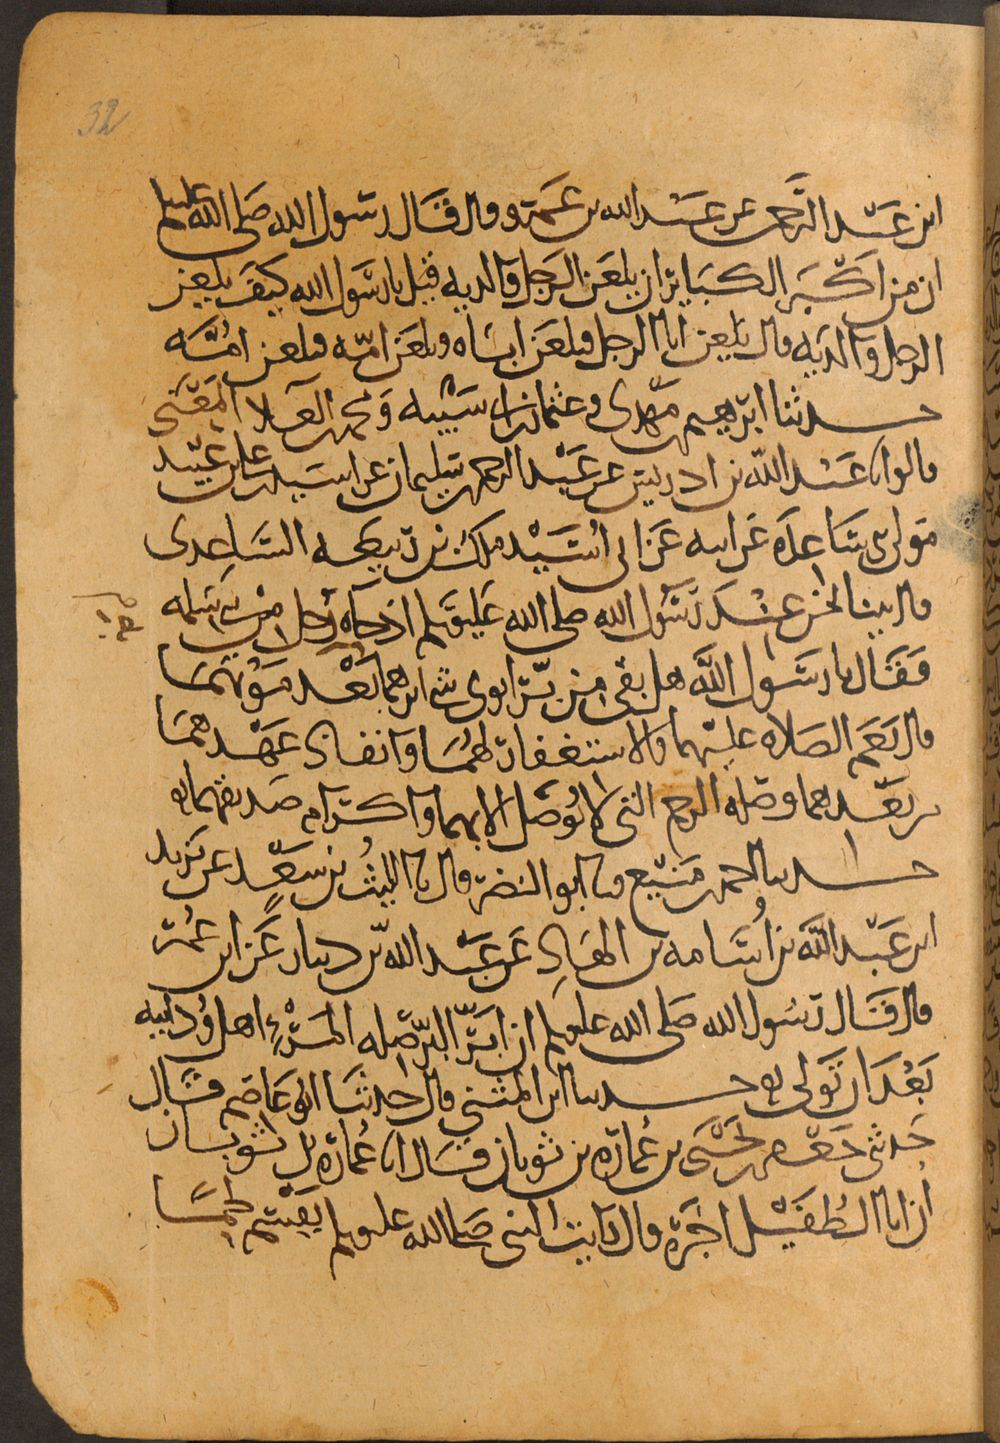 32
ابن عبد الرحمن عن عبد الله بن عمرو قال قال رسول الله صلى الله عليه وسلم
ان من اكبر الكبائر ان يلعن الرجل والديه قيل يا رسول الله كيف يلعن
الرجل والديه قال يلعن ابا الرجل فيلعن اباه ويلعن امه فيلعن امه
حدثنا ابرهيم بن مهدى وعثمان بن ابى شيبه ومحمد بن العلا المعنى
قالوا ثنا عبد الله بن ادريس عن عبد الرحمن بن سليمان عن اسيد بن على بن عبيد
مولى بنى ساعدة عن ابيه عن ابى اسيد ملك بن ربيعه الساعدى
قال بينا نحن عند رسول الله صلى الله عليه وسلم اذ جاه رجل من بنى سلمه
فقال يا رسول الله هل بقى من بر ابوى شى ابرهما به بعد موتهما
قال نعم الصلاه عليهما والاستغفار لهما وانفاذ عهدهما
من بعدهما وصله الرحم التى لا توصل الا بهما واكرام صديقهما
حدثنا احمد بن منيع ثنا ابو النضر قال ثنا الليث بن سعد عن يزيد
ابن عبد الله بن اسامه بن الهاد عن عبد الله بن دينار عن ابن عمر
قال قال رسول الله صلى الله عليه وسلم ان ابر البر صله المرء اهل ود ابيه
بعد ان تولى حدثنا ابن المثنى قال حدثنا ابو عاصم قال
حدثنى جعفر بن يحيى بن عمارة بن ثوبان قال انا عمارة بن ثوبان
ان ابا الطفيل اخبره قال رايت النبى صلى الله عليه وسلم يقسم لحما